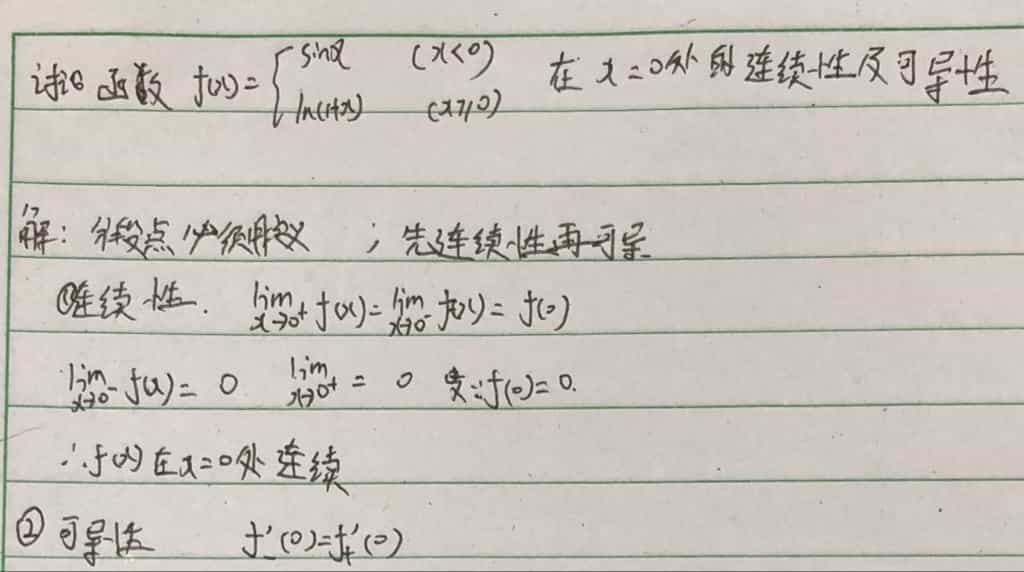 讨论函数 f(x)={ sinx (x<0) 在x=0处的连续性及可导性
ln(1+x) (x≥0)
解: 分段点必须用定义 ; 先连续性再可导
①连续性. lim x→0⁺ f(x)=lim x→0⁻ f(x)= f(0)
lim x→0⁻ f(x)= 0 lim x→0⁺ = 0 又∵f(0)=0.
∴f(x)在x=0处连续
② 可导性 f₋'(0)=f₊'(0)